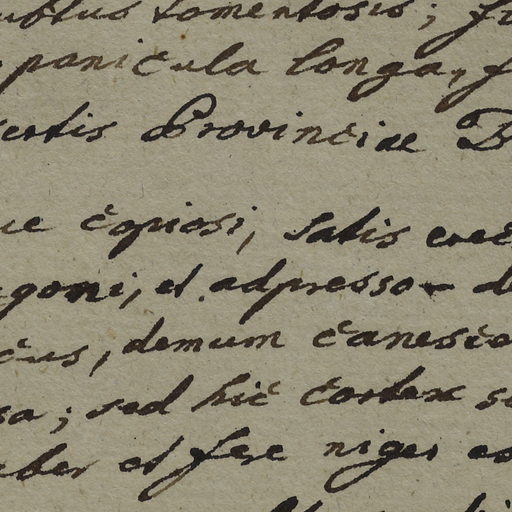 subtus tomentosis; fo
panicula longa, f
sertis Provinciae B
ue copiosi, satis erec
agoni, et adpresso- d
cus, demum canesce
sa; sed hic cortex s
aber et fere niger es